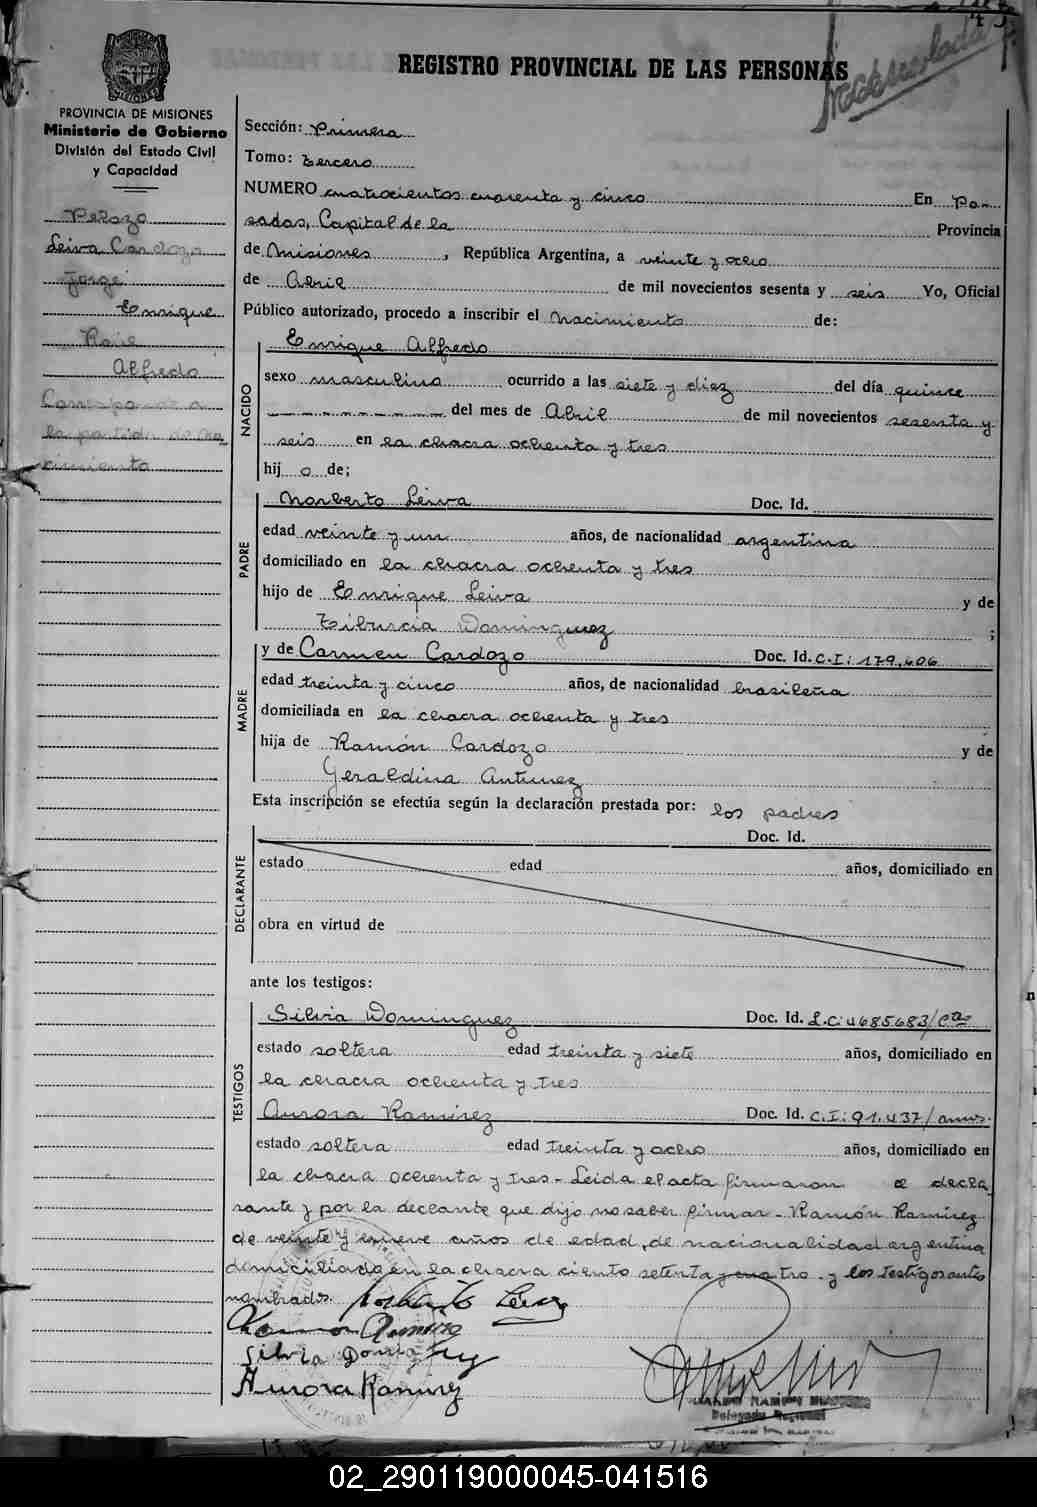 REGISTRO PROVINCIAL DE LAS PERSONAS
PROVINCIA DE MISIONES
Ministerio de Gobierno
División del Estado Civil
y Capacidad
Leiva Cardozo
Jorge
Enrique
Raúl
Alfredo
Corresponde a
la partida de na
cimiento
Sección: Primera
Tomo: tercero
NUMERO cuatrocientos cuarenta y cinco En Po-
sadas, Capital de la Provincia
de Misiones, República Argentina, a veinte y ocho
de Abril de mil novecientos sesenta y seis Yo, Oficial
Público autorizado, procedo a inscribir el Nacimiento de:
NACIDO
Enrique Alfredo
sexo masculino ocurrido a las siete y diez del día quince
del mes de Abril de mil novecientos sesenta y
seis en la chacra ochenta y tres
hij o de;
PADRE
Norberto Leiva Doc. Id.
edad veinte y un años, de nacionalidad argentina
domiciliado en la chacra ochenta y tres
hijo de Enrique Leiva y de
Tiburcia Dominguez ;
MADRE
y de Carmen Cardozo Doc. Id. C.I: 179.606
edad treinta y cinco años, de nacionalidad brasileña
domiciliada en la chacra ochenta y tres
hija de Ramón Cardozo y de
Geraldina Antunez
Esta inscripción se efectúa según la declaración prestada por: los padres
DECLARANTE
Doc. Id.
estado edad años, domiciliado en
obra en virtud de
ante los testigos:
TESTIGOS
Silvia Dominguez Doc. Id. L.C: 4685683/
estado soltera edad treinta y siete años, domiciliado en
la chacra ochenta y tres
Aurora Ramirez Doc. Id. C.I: 91.437/
estado soltera edad treinta y ocho años, domiciliado en
la chacra ochenta y tres - Leida el acta firmaron el decla
rante y por la que dijo no saber firmar - Ramón Ramirez
de veinte y nueve años de edad, de nacionalidad argentina
domiciliado en la chacra ciento setenta y cuatro - y los testigos antes
nombrados. Norberto Leiva
Ramon Ramirez
Silvia Dominguez
Aurora Ramirez
Delegado Regional
02_290119000045-041516